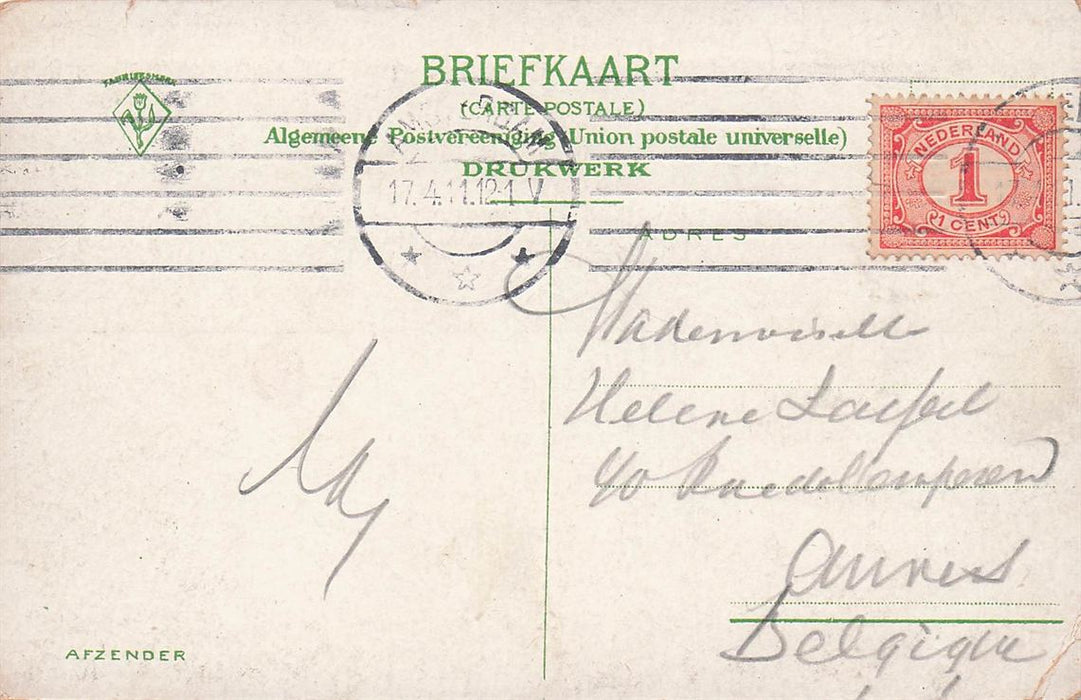 FABRIEKSMERK
BRIEFKAART
(CARTE POSTALE)
Algemeene Postvereeniging (Union postale universelle)
DRUKWERK
17.4.11.12-1 V
NEDERLAND
1
1 CENT
ADRES
Mademoiselle
Helene
40 Rue
Anvers
Belgique
AFZENDER